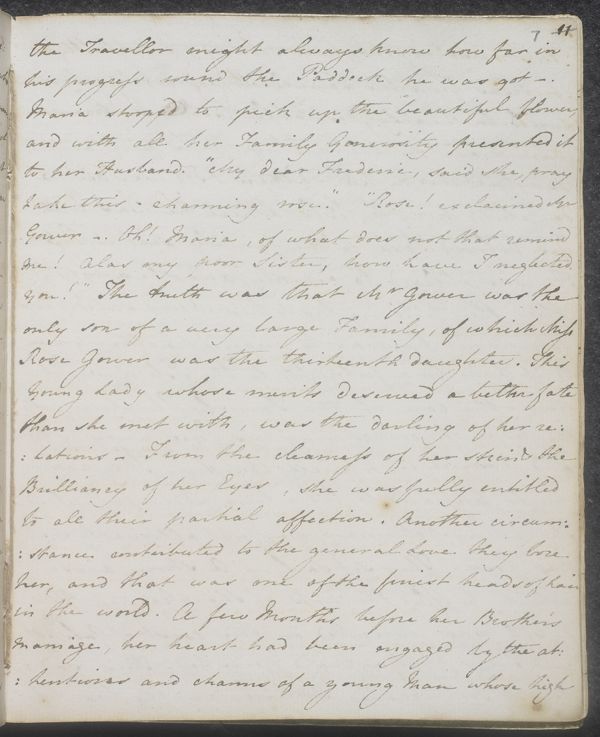 7 11
the Travellor might always know how far in
his progress round the Paddock he was got -.
Maria stooped to pick up the beautiful flower,
and with all her Family Generosity presented it
to her Husband. "My dear Frederic, said she, pray
take this - charming rose." "Rose! exclaimed Mr
Gower -. Oh! Maria, of what does not that remind
me! Alas my poor Sister, how have I neglected
you!" The truth was that Mr Gower was the
only son of a very large Family, of which Miss
Rose Gower was the thirteenth daughter. This
Young Lady whose merits deserved a better fate
than she met with, was the darling of her re:
:lations - From the clearness of her skin & the
Brilliancy of her Eyes, she was fully entitled
to all their partial affection. Another circum:
:stance contributed to the general Love they bore
her, and that was one of the finest heads of hair
in the world. A few Months before her Brother's
marriage, her heart had been engaged by the at:
:tentions and charms of a young Man whose high